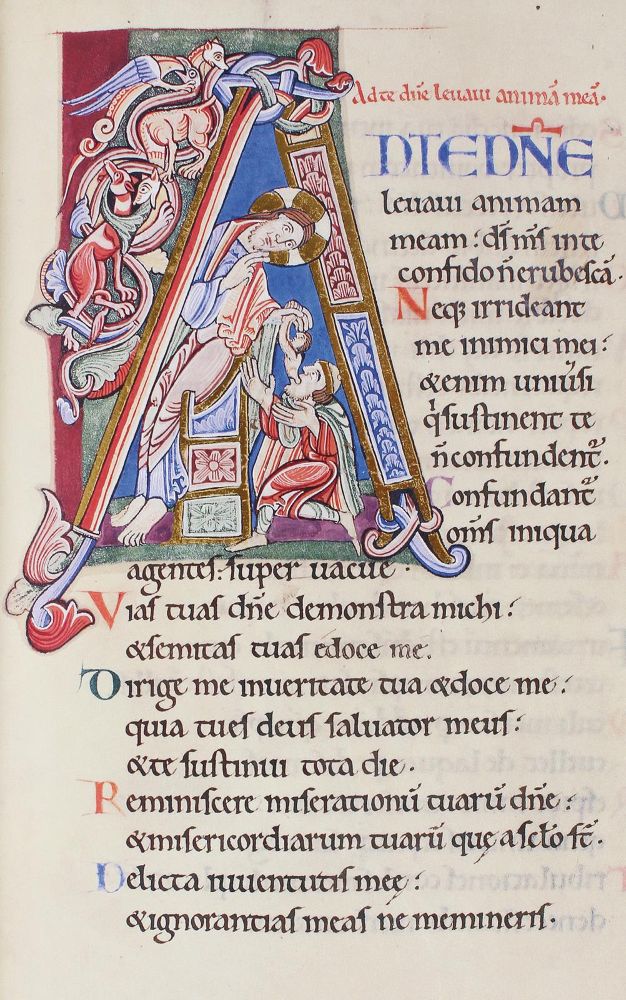 Ad te dn̄e levavi animā meā.
AD TE DN̄E
levavi animam
meam: dſ mſ in te
confido n̄ erubeſcā.
Neq; irrideant
me inimici mei:
&enim univ̄ſi
q̇ſuſtinent te
n̄ confundent̄.
Confundant̄
om̄ſ iniqua
agenteſ: ſuper vacue
Viaſ tuaſ dn̄e demonſtra michi:
&ſemitaſ tuaſ edoce me.
Dirige me in veritate tua &doce me:
quia tu eſ deuſ ſalvator meuſ:
&te ſuſtinui tota die.
Reminiſcere miſerationū tuarū dn̄e:
&miſericordiarum tuarū quę a ſclo ſt̄.
Delicta iuventutiſ meę:
&ignorantiaſ meaſ ne memineriſ.